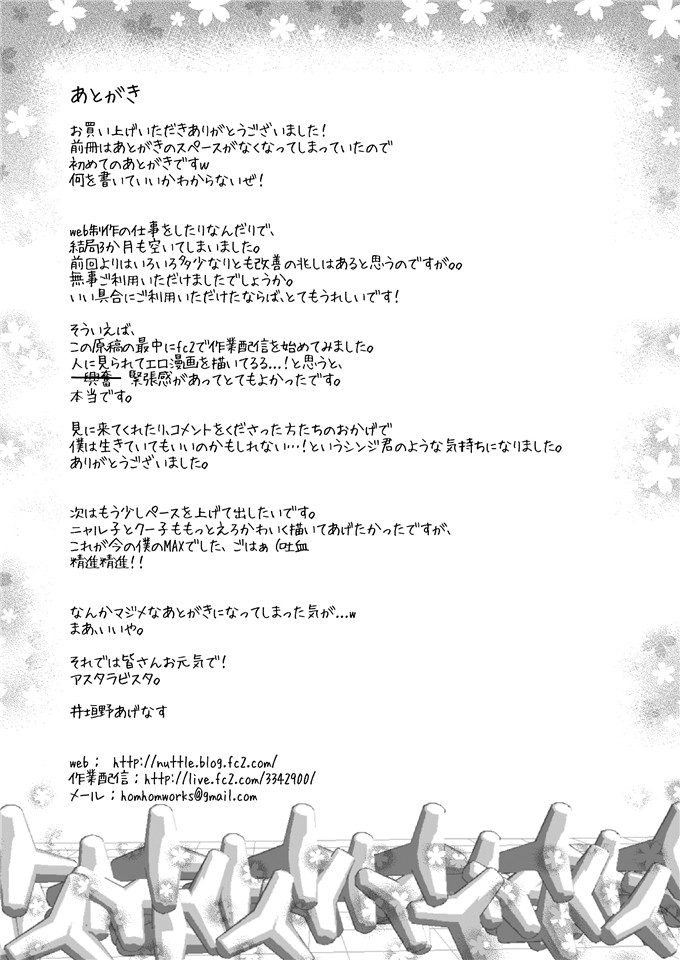 あとがき
お買い上げいただきありがとうございました!
前冊はあとがきのスペースがなくなってしまっていたので
初めてのあとがきですw
何を書いていいかわからないぜ!
web制作の仕事をしたりなんだりで、
結局3か月も空いてしまいました。
前回よりはいろいろ多少なりとも改善の兆しはあると思うのですが。。
無事ご利用いただけましたでしょうか。
いい具合にご利用いただけたならば、とてもうれしいです!
そういえば、
この原稿の最中にfc2で作業配信を始めてみました。
人に見られてエロ漫画を描いてるる...!と思うと、
興奮 緊張感があってとてもよかったです。
本当です。
見に来てくれたり、コメントをくださった方たちのおかげで
僕は生きていてもいいのかもしれない…!というシンジ君のような気持ちになりました。
ありがとうございました。
次はもう少しペースを上げて出したいです。
ニャル子とクー子ももっとえろかわいく描いてあげたかったですが、
これが今の僕のMAXでした、ごはぁ(吐血
精進精進!!
なんかマジメなあとがきになってしまった気が...w
まあ、いいや。
それでは皆さんお元気で!
アスタラビスタ。
井垣野あげなす
web : http://nuttle.blog.fc2.com/
作業配信 : http://live.fc2.com/3342900/
メール : homhomworks@gmail.com